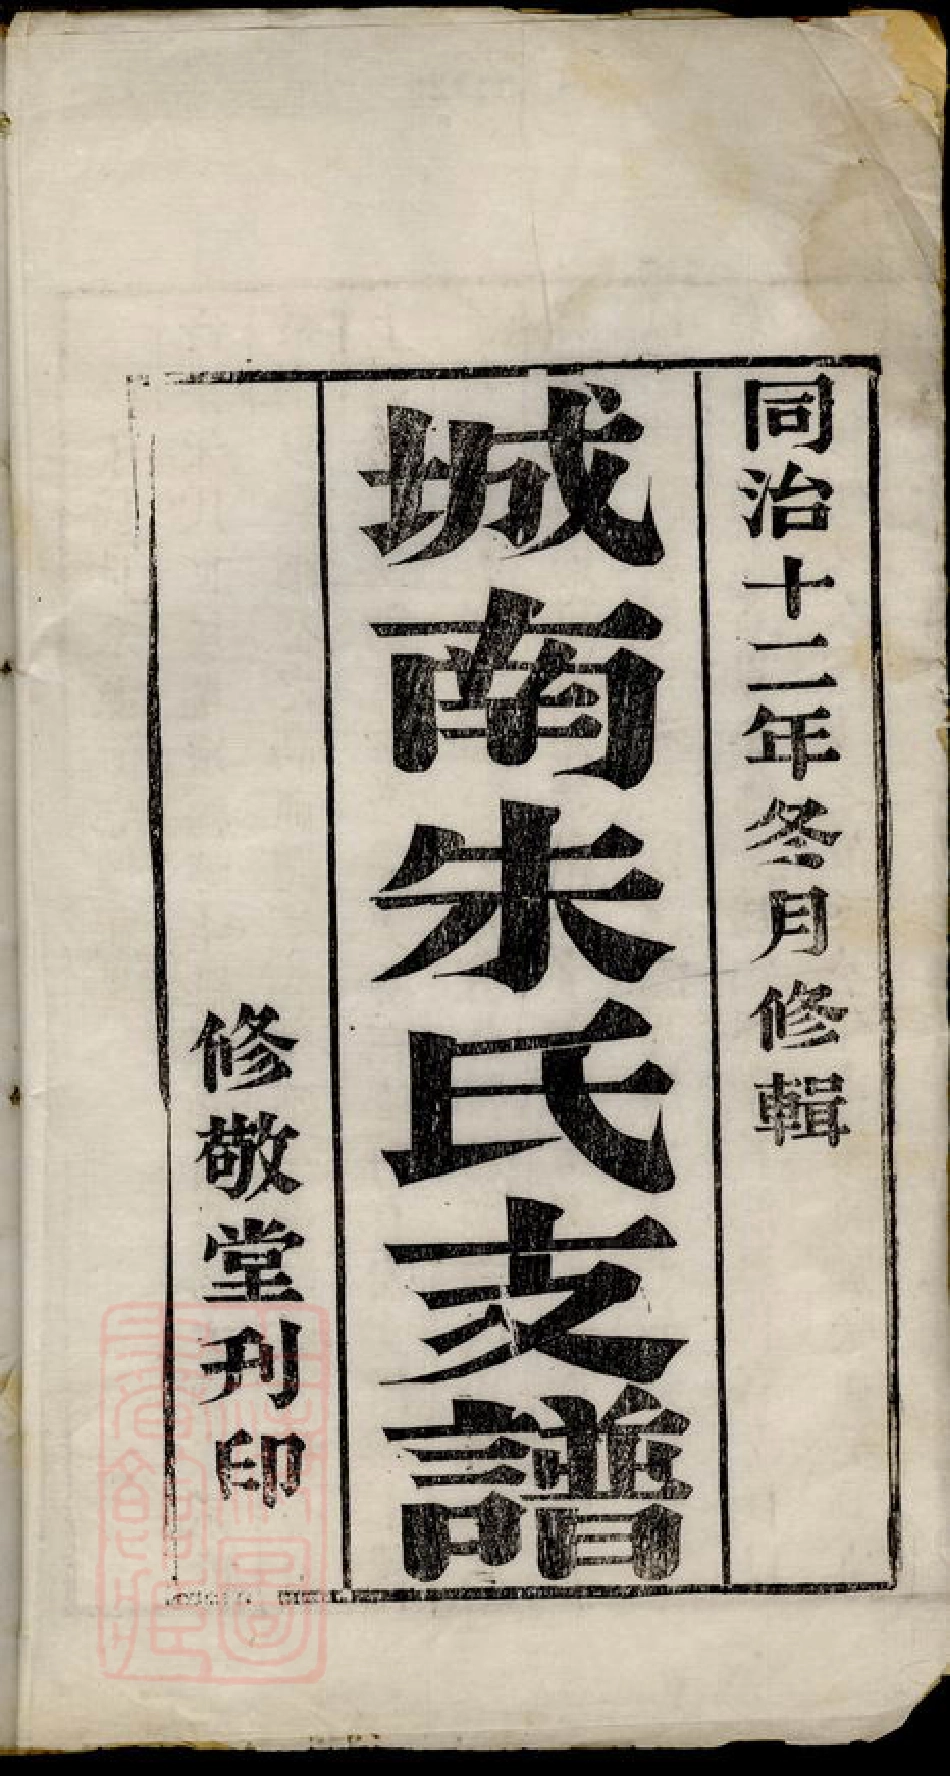 同治十二年冬月修輯
城南朱氏支譜
修敬堂刊印